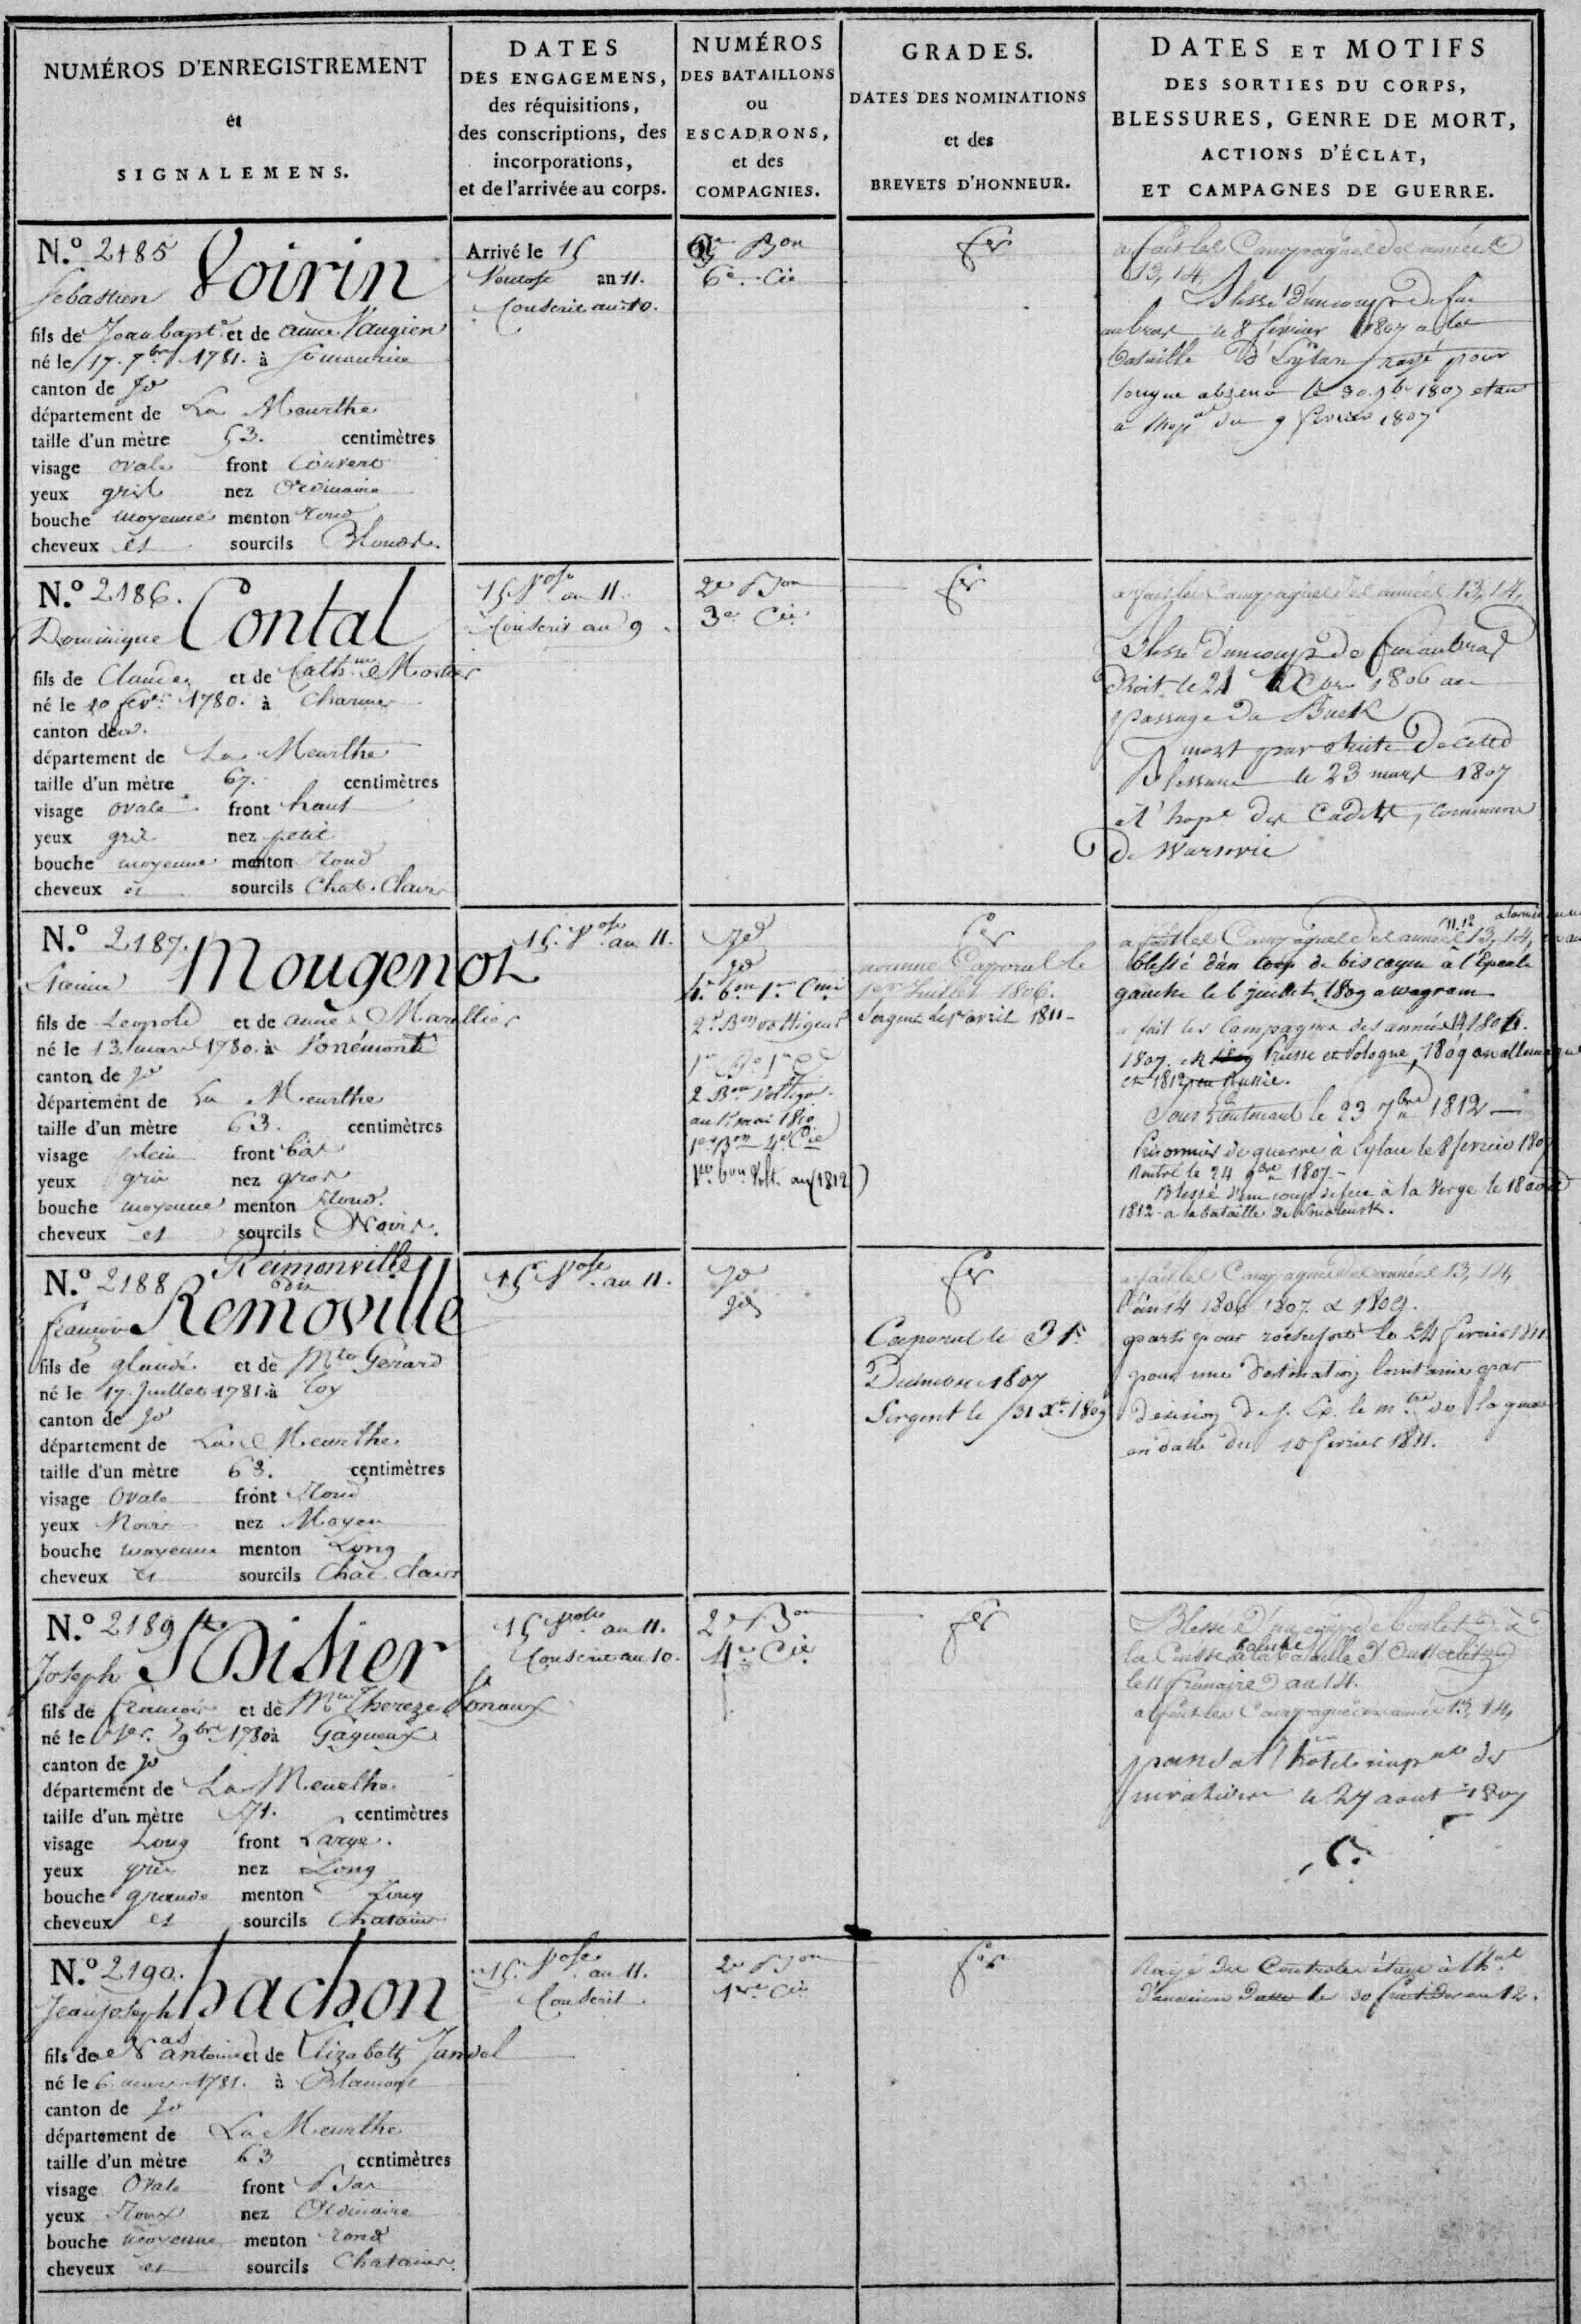 NUMÉROS D'ENREGISTREMENT
et
SIGNALEMENS.
DATES
DES ENGAGEMENS,
des réquisitions,
des conscriptions, des
incorporations,
et de l'arrivée au corps.
NUMÉROS
DES BATAILLONS
ou
ESCADRONS,
et des
COMPAGNIES.
GRADES.
DATES DES NOMINATIONS
et des
BREVETS D'HONNEUR.
DATES ET MOTIFS
DES SORTIES DU CORPS,
BLESSURES, GENRE DE MORT,
ACTIONS D'ÉCLAT,
ET CAMPAGNES DE GUERRE.
N.º 2185 Voirin
Sebastien
fils de Jean bapt.e et de anne Vaugien
né le 17. 7bre 1781. à St maurice
canton de
département de La Meurthe
taille d'un mètre 53. centimètres
visage ovale front Couvert
yeux gris nez Ordinaire
bouche moyenne menton rond
cheveux et sourcils Blonds.
Arrivé le 15
Ventose an 11.
Conscrit an 10.
Bon
6e Cie
fer
a fait les Campagnes des années
13, 14,
Blessé d'un coup de feu
au bras le 8 février 1807 a la
bataille d'Eylau rayé pour
longue absence le 30. 9bre 1807 etant
a l'hopal du 9 février 1807
N.º 2186. Contal
Dominique
fils de Claude et de Cathne Mortier
né le 10 fevr. 1780. à Charmes
canton de id.
département de La Meurthe
taille d'un mètre 67. centimètres
visage ovale front haut
yeux gris nez petit
bouche moyenne menton Rond
cheveux et sourcils Chat. Clairs
15 Vose an 11.
Conscrit an 9
2e Bon
3e Cie
fer
a fait les Campagnes des années 13, 14,
Blessé d'un coup de feu au bras
droit le 24 Xbre 1806 au
passage du Buck
mort par suite de cette
Blessure le 23 mars 1807
à l'hopl des Cadets, commune
de Warsovie
N.º 2187. Mougenot
fils de Leopold et de anne Marellier
né le 13. mars 1780. à
canton de
département de La Meurthe
taille d'un mètre 63. centimètres
visage plein front bas
yeux gris nez gros
bouche moyenne menton Rond.
cheveux et sourcils Noirs.
15. Vose an 11.
bon 1re Cnie
2e Bon voltigeurs
2 Bon Voltigr.
au 1r mai 1810
1er Bon 4e Cie
1er bon Volt. au (1812)
fer
nommé Caporal le
1er Juillet 1806.
Sergent le 1r avril 1811
a fait les Campagnes des années 13, 14,
blessé d'un coup de biscayen a l'Epaule
gauche le 6 juillet 1809 a wagram
a fait les Campagnes des années 14 1806.
1807. en Prusse et Pologne, 1809 en allemagne
et 1812 en Russie.
Sous Lieutenant le 23 7bre 1812
Prisonnier de guerre à Eylau le 8 fevrier 1807
Rentré le 24 9bre 1807.
Blessé d'un coup de feu à la Verge le 18 aout
1812 a la bataille de Smolensk.
N.º 2188 Reimonville
dit
François Removille
fils de glaude et de Mte Gerard
né le 17. Juillet 1781. à Toy
canton de
département de La Meurthe.
taille d'un mètre 63. centimètres
visage Ovale front Rond
yeux Noirs nez Moyen
bouche moyenne menton Long
cheveux et sourcils Chat. clairs
15 Vose an 11.
fer
Caporal le 31
Decembre 1807
Sergent le 31 Xbre 1809
a fait les Campagnes des années 13, 14,
l'an 14 1806 1807 & 1809.
parti pour rochefort le 24 fevrier 1811
pour une destination lointaine par
décision de S. Ex. le mtre de la guerre
en date du 10 fevrier 1811.
N.º 2189 St Disier
Joseph
fils de François et de Mie Thereze
né le 1er 9bre 1780 à Gagneux
canton de
département de La Meurthe.
taille d'un mètre 71. centimètres
visage Long front Large.
yeux gris nez Long
bouche grande menton Long
cheveux et sourcils Chatains
15 Vose an 11.
Conscrit an 10.
2e Bon
4e Cie
fer
Blessé d'un coup de boulet à
la Cuisse gauche a la bataille d'Austerlitz
le 11 frimaire an 14.
a fait les Campagnes des années 13, 14,
passé a l'hotel impal des
invalides le 27 aout 1807
N.º 2190. hachon
Jean joseph
fils de Nas antoine et de Elizabeth Jandel
né le 6 mars 1781. à Blamont
canton de
département de La Meurthe
taille d'un mètre 63 centimètres
visage Ovale front Bas
yeux Roux nez Ordinaire
bouche moyenne menton rond
cheveux et sourcils Chatains.
15. Vose an 11.
Conscrit
2e Bon
1ere Cie
fer
Rayé du Controle étant à l'hal
d'ancienne date le 30 fructidor an 12.